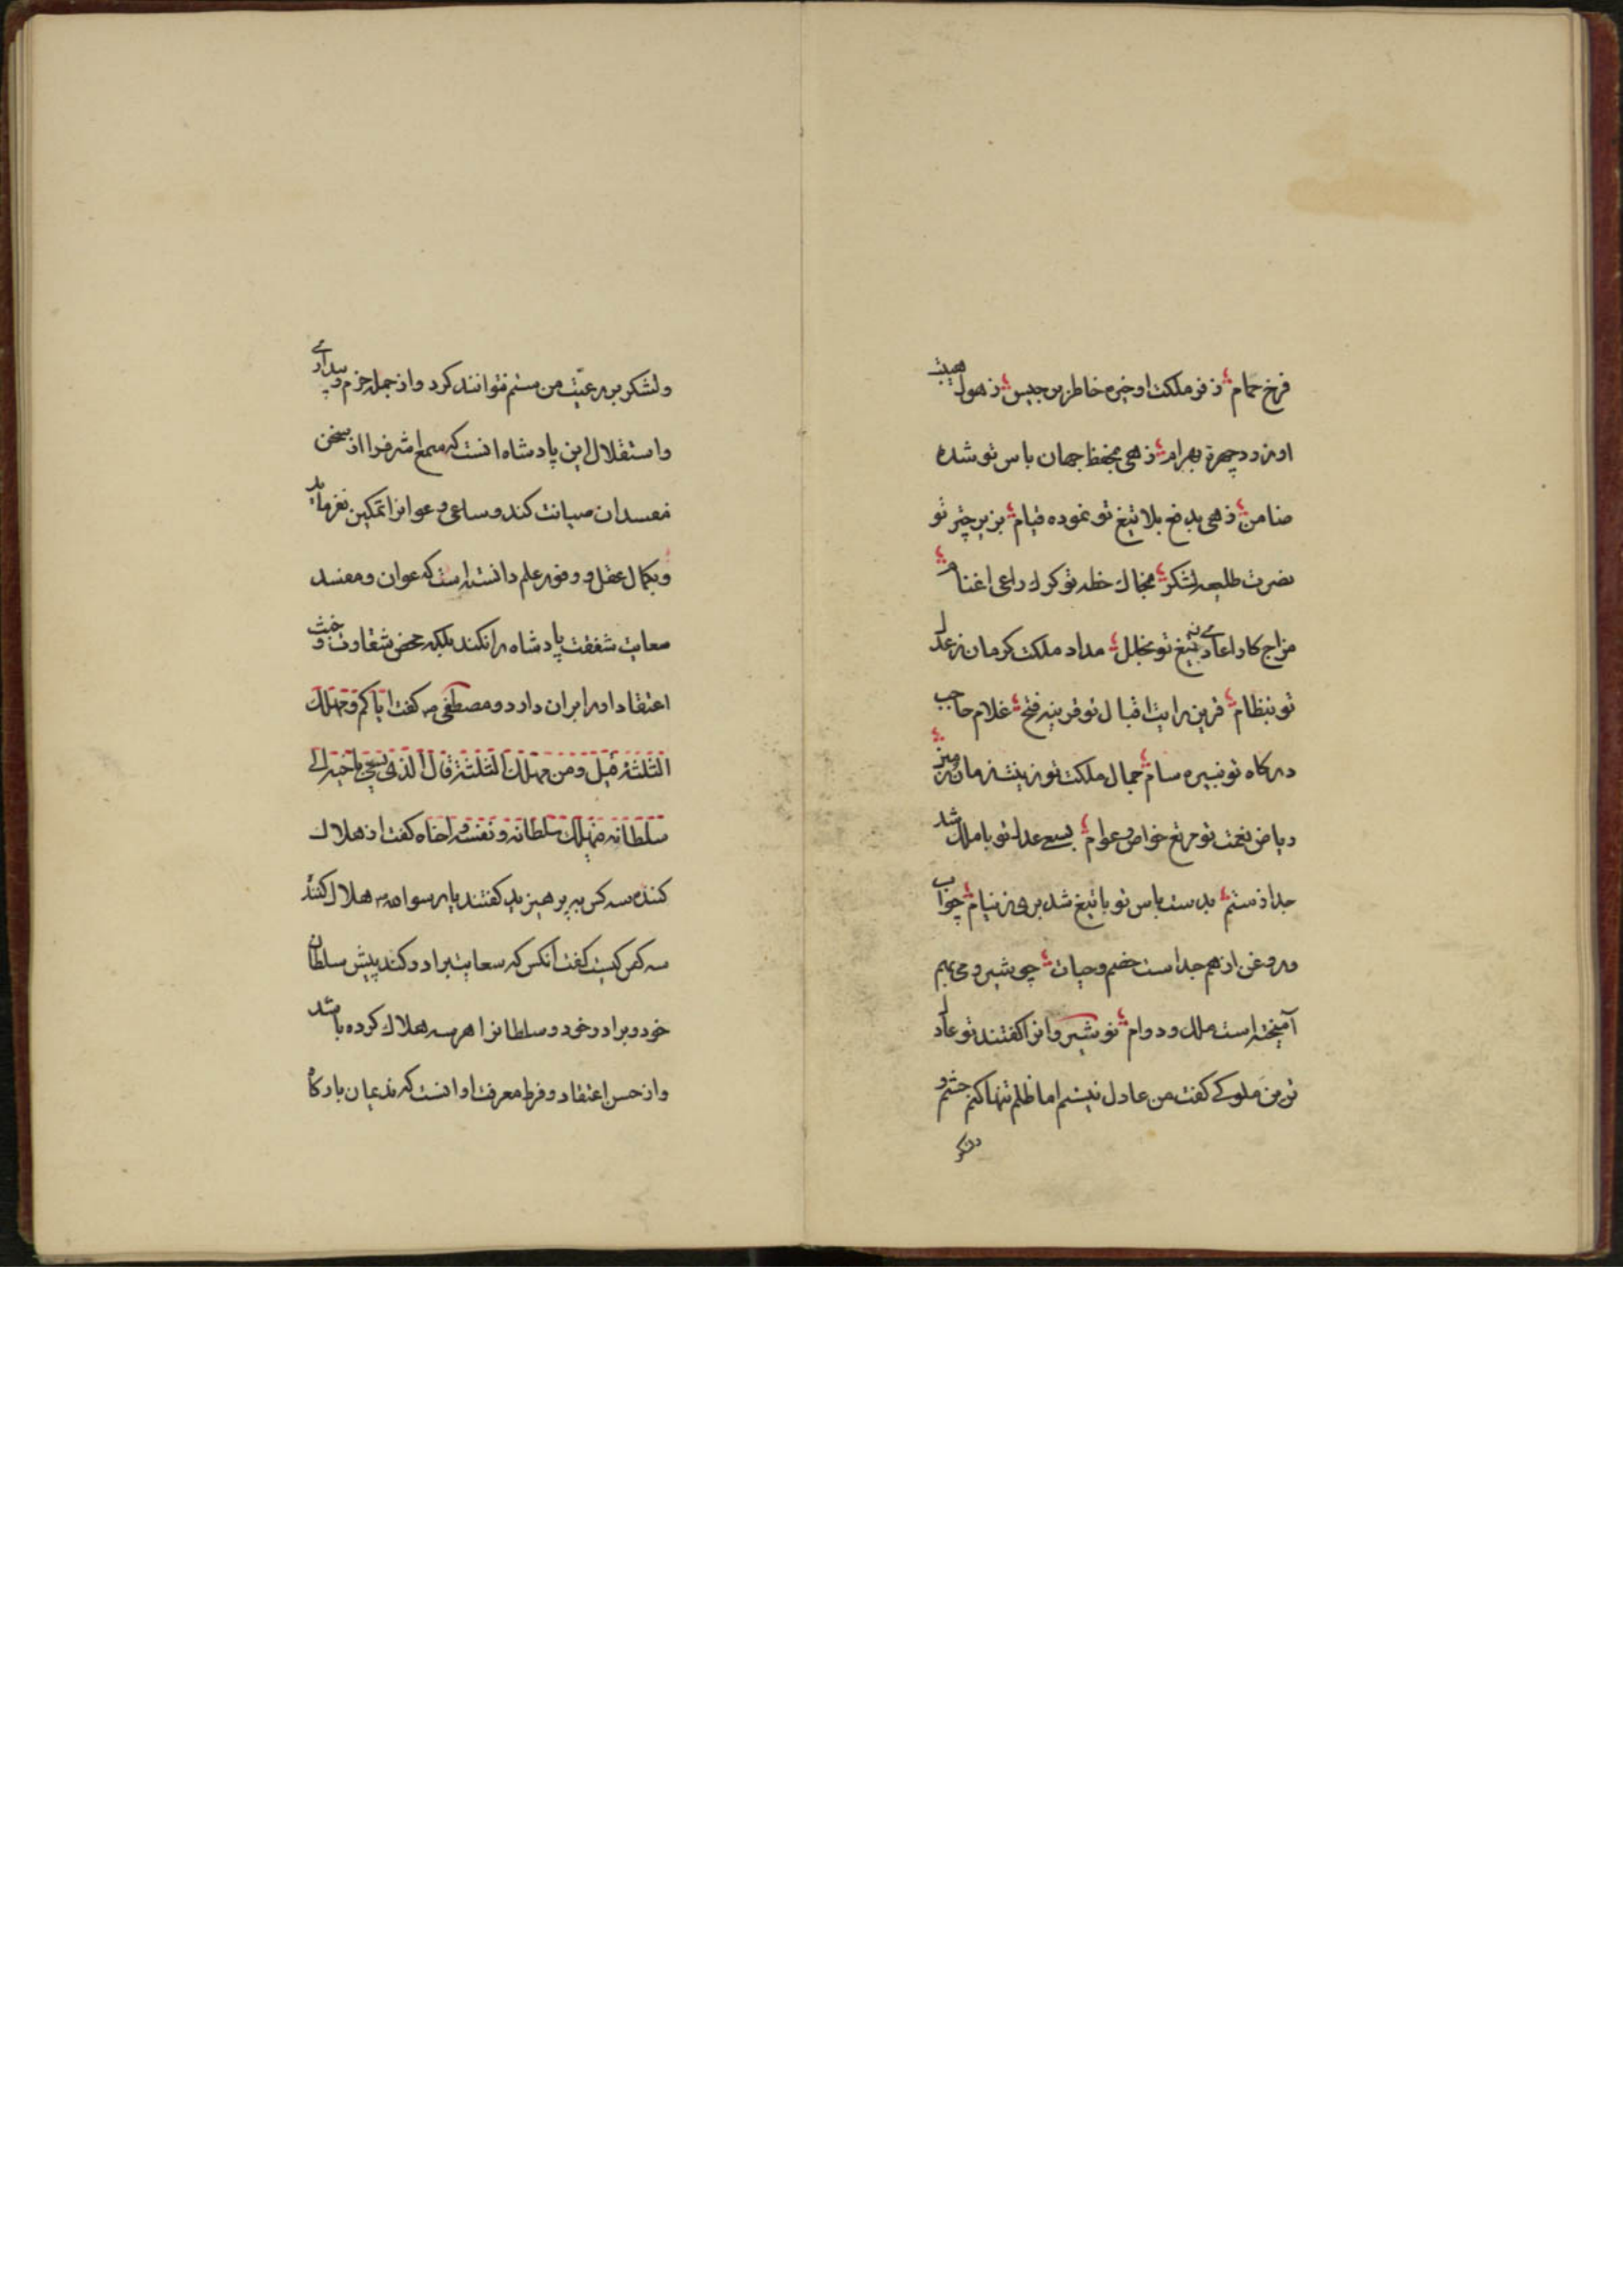 فرخ حمام ز فر ملکت او خیره خاطر برجیس ز هول هیبت
او زرد چهرهٔ بهرام زهی بحفظ جهان باس تو شده
ضامن زهی بدفع بلا تیغ تو نموده قیام بزیر چتر تو
نصرت طلیعه لشکر بخاک خطه تو کرک راعی اغنام
مزاج کار اعادی به تیغ تو بخلل مدار ملکت کرمان ز عدل
تو بنظام قرین رایت اقبال تو قرینه فتح غلام حاجب
درکاه تو نبیره سام جمال ملکت تو زینت زمان و زمین
ریاض نعمت تو مرتع خواص و عوام بسعی عدل تو با ملک شد
جدا ز ستم بدست باس تو با تیغ شد بری ز نیام چو آب
و روغن از هم جداست خصم و حیات چو شیر و می بهم
آمیخته است ملک و دوام نوشیروانرا کفتند تو عادل
ترین ملوکی کفت من عادل نیستم اما ظلم تنها کنم حشم و
لشکر
ولشکر بر رعیّت من ستم نتوانند کرد واز جمله حزم و بیداری
واستقلال این پادشاه انست که سمع اشرف را از سخن
مفسدان صیانت کند وساعی و عوانرا تمکین نفرماید
وبکمال عقل و وفور علم دانسته است که عوان ومفسد
سعایت شفقت پادشاه را نکند بلکه محض شقاوت و خبث
اعتقاد او را بران دارد ومصطفی ص کفت ایاکم ومهلک
الثلثة قیل ومن مهلک الثلثة قال الذی یسعی باخیه الی
سلطانه فیهلک سلطانه ونفسه واخاه کفت از هلاک
کننده سه کس بپرهیزید کفتند یا رسول الله هلاک کنند
سه کس کیست کفت آنکس که سعایت برادر کند پیش سلطان
خود و برادر خود و سلطانرا هر سه هلاک کرده باشد
واز حسن اعتقاد وفرط معرفت او انست که ندیمان بارکاه